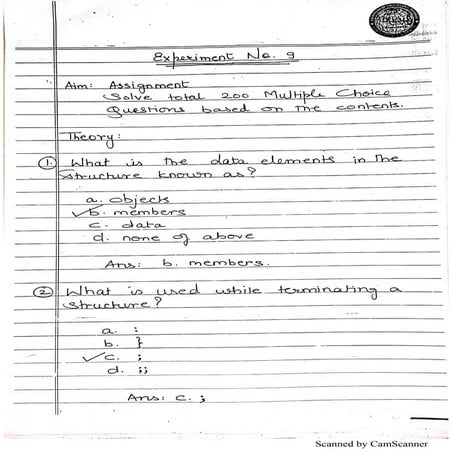 Experiment No. 9
Aim: Assignment
Solve total 200 Multiple Choice
Questions based on the contents.
Theory:
1. What is the data elements in the
structure known as?
a. objects
b. members
c. data
d. none of above
Ans: b. members.
2. What is used while terminating a
structure?
a. :
b. }
c. ;
d. ;;
Ans: c. ;
Scanned by CamScanner